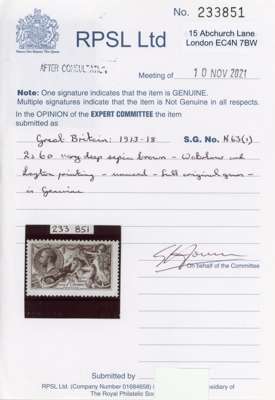 No. 233851
RPSL Ltd
15 Abchurch Lane
London EC4N 7BW
AFTER CONSULTANCY
Meeting of 10 NOV 2021
Note: One signature indicates that the item is GENUINE.
Multiple signatures indicate that the item is Not Genuine in all respects.
In the OPINION of the EXPERT COMMITTEE the item
submitted as
Great Britain: 1913-18 S.G. No. N63(1)
2s 6d very deep sepia brown - Waterlow and
Layton printing - unused - full original gum -
is genuine
On behalf of the Committee
233 851
Submitted by
RPSL Ltd. (Company Number 01684658)
The Royal Philatelic Soc